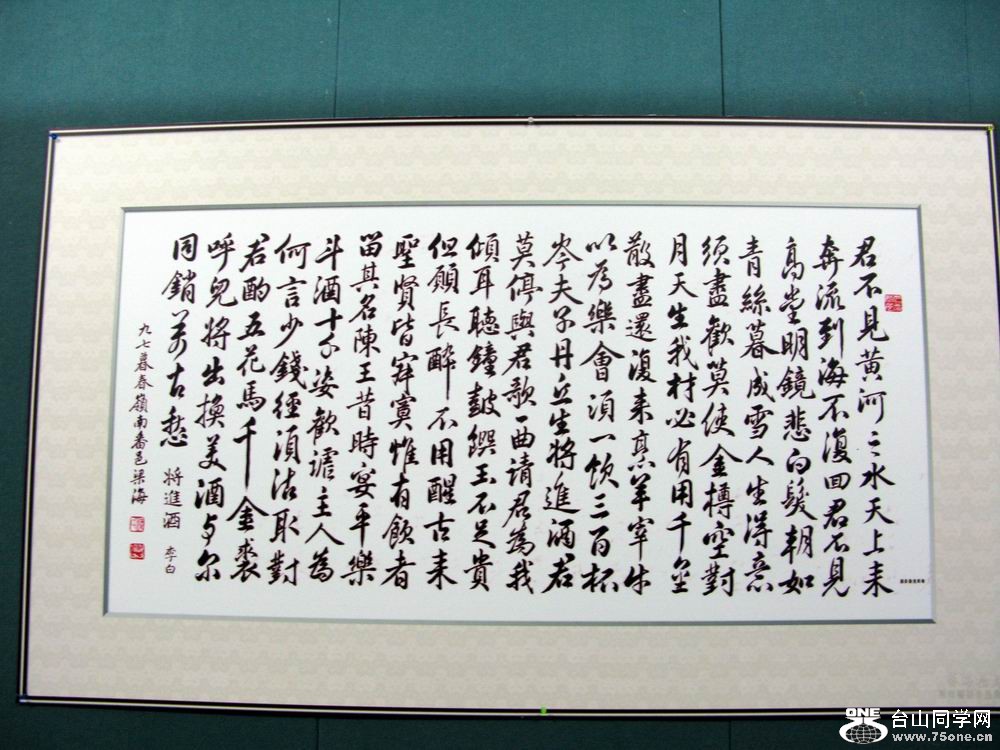 君不見黄河之水天上来
奔流到海不復回君不見
高堂明鏡悲白髮朝如
青絲暮成雪人生得意
須盡歡莫使金樽空對
月天生我材必有用千金
散盡還復来烹羊宰牛
以為樂會須一飲三百杯
岑夫子丹丘生將進酒君
莫停與君歌一曲請君為我
傾耳聽鐘鼓饌玉不足貴
但願長醉不用醒古来
聖賢皆寂寞惟有飲者
留其名陳王昔時宴平樂
斗酒十千姿歡謔主人為
何言少錢徑須沽取對
君酌五花馬千金裘
呼兒將出換美酒与尔
同銷萬古愁 將進酒 李白
九七暮春嶺南番邑梁海
ONE 台山同学网
www.75one.cn